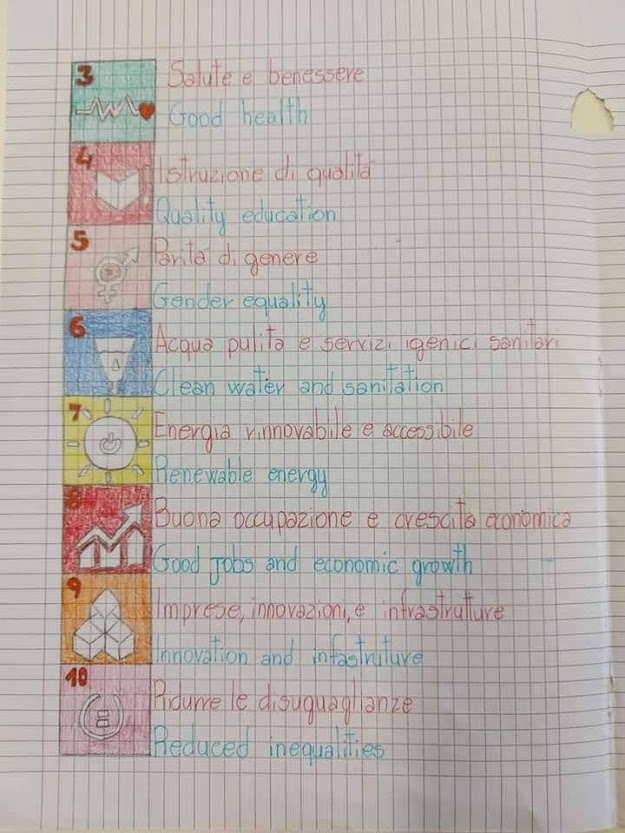 3
Salute e benessere
Good health
4
Istruzione di qualità
Quality education
5
Parità di genere
Gender equality
6
Acqua pulita e servizi igenici sanitari
Clean water and sanitation
7
Energia rinnovabile e accessibile
Renewable energy
8
Buona occupazione e crescita economica
Good jobs and economic growth
9
Imprese, innovazioni, e infrastrutture
Innovation and infastruture
10
Ridurre le disuguaglianze
Reduced inequalities